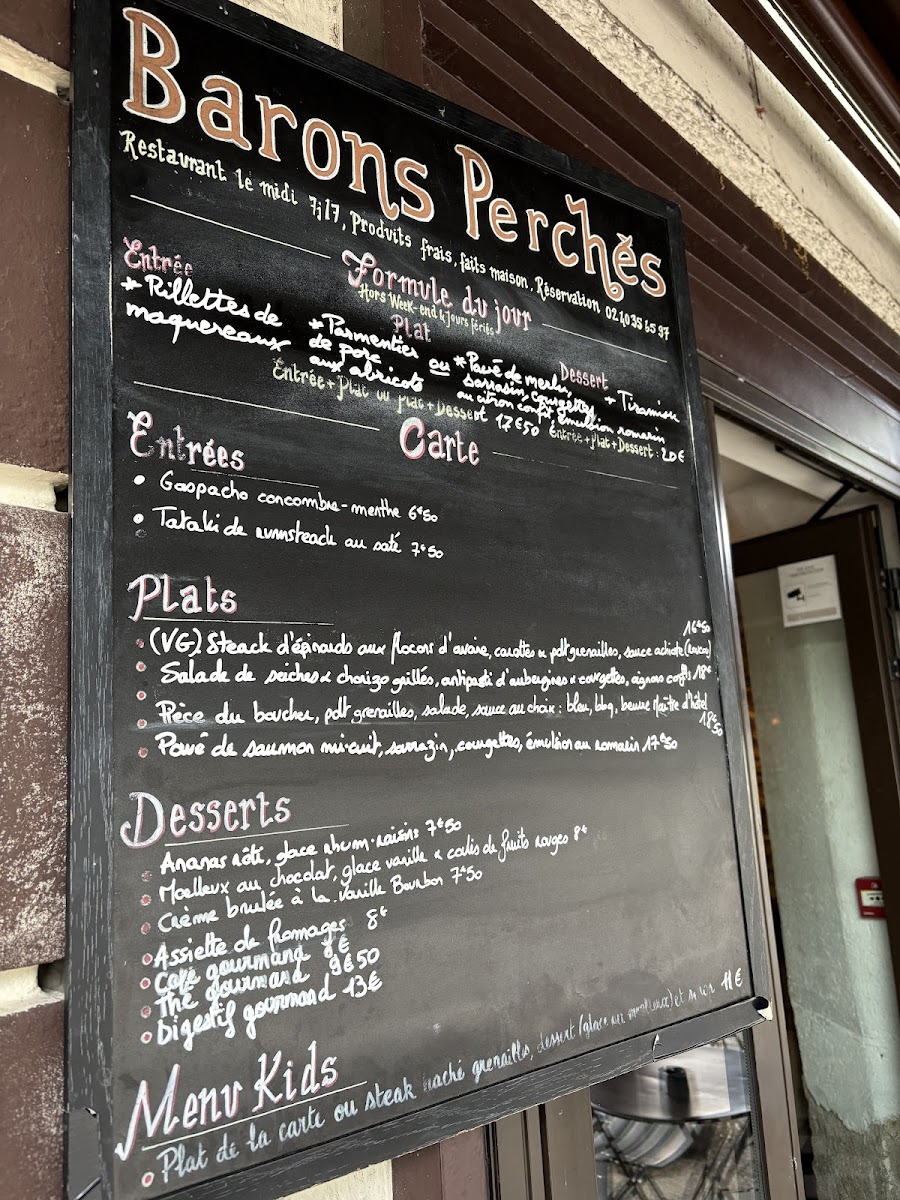 Barons Perchés
Restaurant le midi 7j/7, Produits frais, faits maison, Réservation 02 40 35 65 37
Formule du jour
Hors Week-end & Jours fériés
Entrée
* Rillettes de
maquereaux
Plat
* Parmentier
de porc
aux abricots
ou
* Pavé de merlu,
sarrasin, courgettes,
au citron confit, émulsion romarin
Dessert
* Tiramisu
Entrée + Plat ou Plat + Dessert 17€50 Entrée + Plat + Dessert : 20€
Carte
Entrées
Gaspacho concombre-menthe 6€50
Tataki de rumsteack au saté 7€50
Plats
(VG) Steack d'épinards aux flocons d'avoine, carottes & pdt grenailles, sauce achiote 16€50
Salade de seiches & chorizo grillés, antipasti d'aubergines & courgettes, oignons confits 18€
Pièce du boucher, pdt grenailles, salade, sauce au choix : bleu, bbq, beurre Maître d'hôtel 18€50
Pavé de saumon mi-cuit, sarrazin, courgettes, émulsion au romarin 17€50
Desserts
Ananas rôti, glace rhum-raisins 7€50
Moelleux au chocolat, glace vanille & coulis de fruits rouges 8€
Crème brulée à la vanille Bourbon 7€50
Assiette de fromages 8€
Café gourmand 8€
Thé gourmand 9€50
Digestif gourmand 13€
Menu Kids
Plat de la carte ou steak haché grenailles, dessert (glace ou moelleux) et 11€